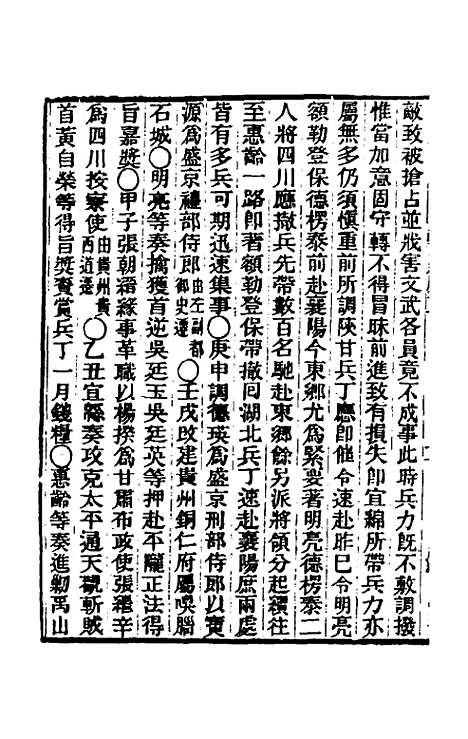 敵致被搶占並戕害文武各員竟不成事此時兵力既不敷調撥
惟當加意固守轉不得冒昧前進致有損失卽宜綿所帶兵力亦
屬無多仍須慎重前所調陝甘兵丁應卽催令速赴昨已令明亮
額勒登保德楞泰前赴襄陽今東鄉尤爲緊要著明亮德楞泰二
人將四川應撤兵先帶數百名馳赴東鄉餘另派將領分起續往
至惠齡一路卽著額勒登保帶撤回湖北兵丁速赴襄陽庶兩處
皆有多兵可期迅速集事○庚申調德瑛爲盛京刑部侍郎以寶
源爲盛京禮部侍郎由左副都御史遷○壬戌改建貴州銅仁府屬嗅腦
石城○明亮等奏擒獲首逆吳廷玉吳廷英等押赴平隴正法得
旨嘉獎○甲子張朝縉緣事革職以楊揆爲甘肅布政使張繼辛
爲四川按察使由貴州貴西道遷○乙丑宜緜奏攻克太平通天觀斬賊
首黃自榮等得旨獎賚賞兵丁一月錢糧○惠齡等奏進勦禹山